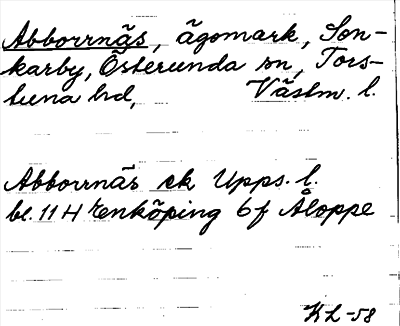 Abborrnäs, ägomark, Son-
karby, Österunda sn, Tors-
tuna hd, Västm. l.
Abborrnäs ek Upps. l.
bl. 11 H Enköping 6 f Åloppe
KL -58